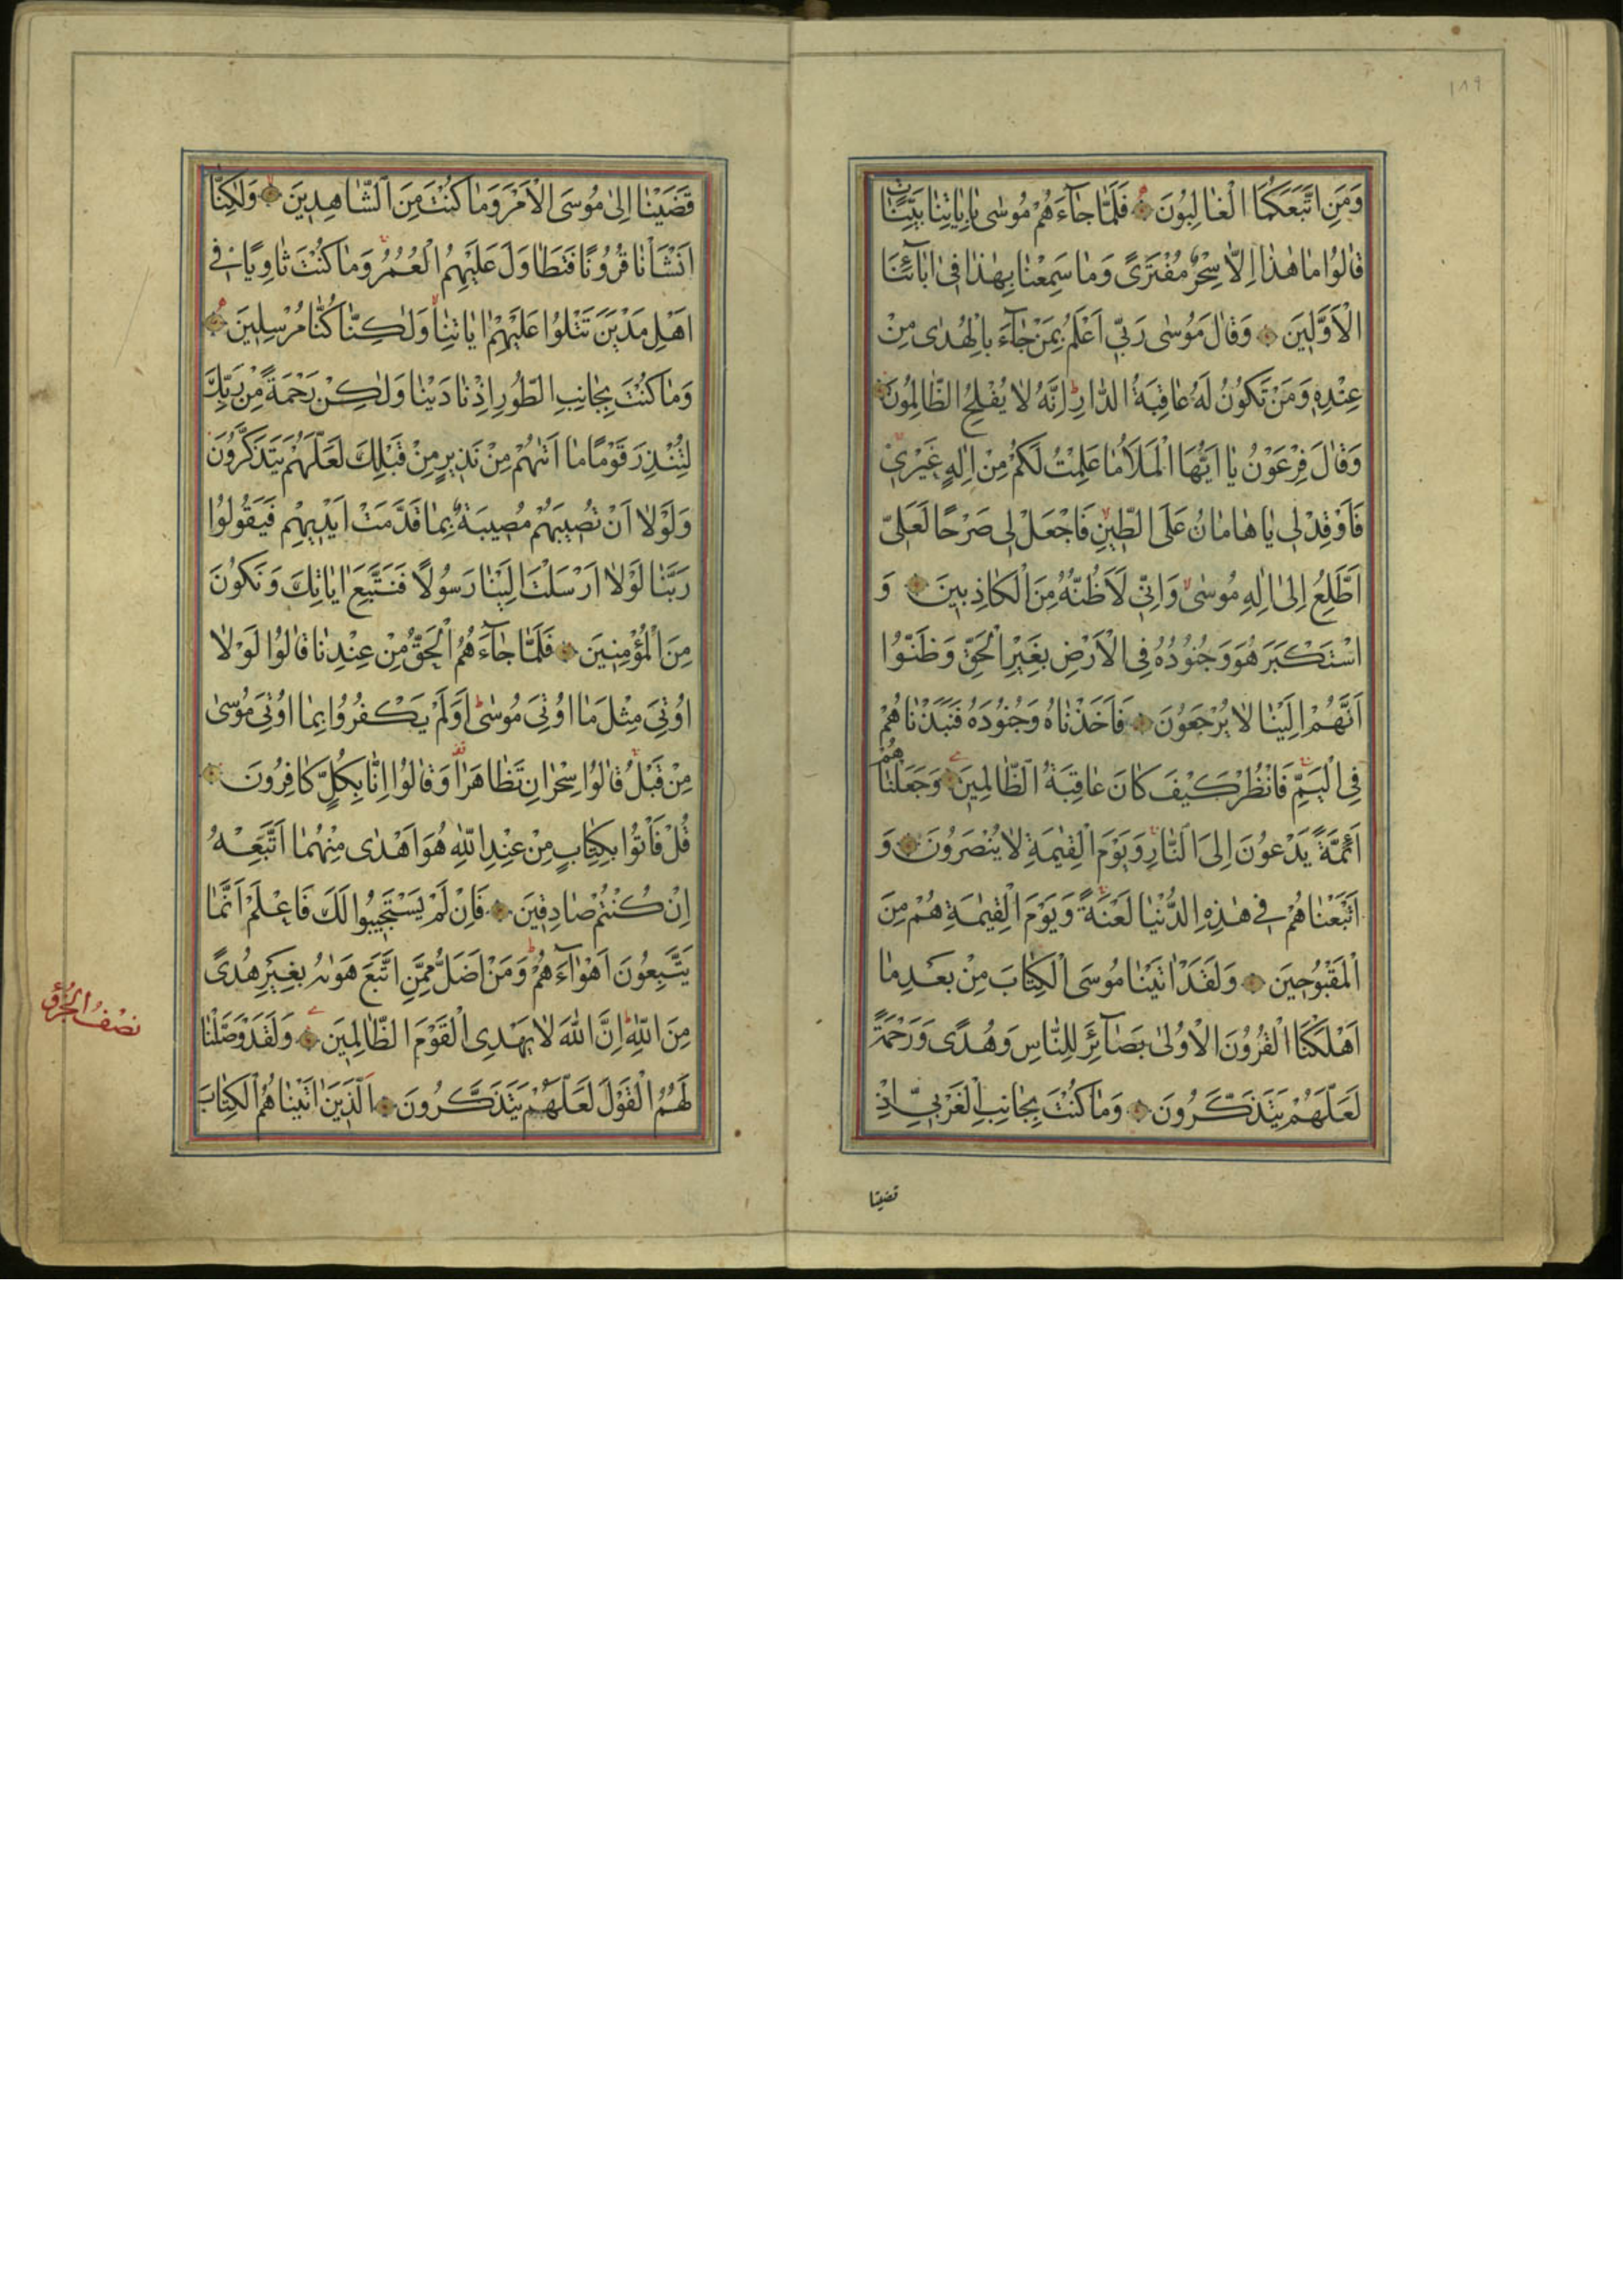 ١٨٩
وَمَنِ اتَّبَعَكُمَا الْغَالِبُونَ فَلَمَّا جَآءَهُمْ مُوسٰى بِاٰيَاتِنَا بَيِّنَاتٍ
قَالُوا مَا هٰذَا اِلَّا سِحْرٌ مُفْتَرًى وَمَا سَمِعْنَا بِهٰذَا فِى اٰبَآئِنَا
الْاَوَّلِينَ وَقَالَ مُوسٰى رَبِّى اَعْلَمُ بِمَنْ جَآءَ بِالْهُدٰى مِنْ
عِنْدِهِ وَمَنْ تَكُونُ لَهُ عَاقِبَةُ الدَّارِ اِنَّهُ لَا يُفْلِحُ الظَّالِمُونَ
وَقَالَ فِرْعَوْنُ يَا اَيُّهَا الْمَلَأُ مَا عَلِمْتُ لَكُمْ مِنْ اِلٰهٍ غَيْرِى
فَاَوْقِدْ لِى يَا هَامَانُ عَلَى الطِّينِ فَاجْعَلْ لِى صَرْحًا لَعَلِّى
اَطَّلِعُ اِلٰى اِلٰهِ مُوسٰى وَاِنِّى لَاَظُنُّهُ مِنَ الْكَاذِبِينَ وَ
اسْتَكْبَرَ هُوَ وَجُنُودُهُ فِى الْاَرْضِ بِغَيْرِ الْحَقِّ وَظَنُّوا
اَنَّهُمْ اِلَيْنَا لَا يُرْجَعُونَ فَاَخَذْنَاهُ وَجُنُودَهُ فَنَبَذْنَاهُمْ
فِى الْيَمِّ فَانْظُرْ كَيْفَ كَانَ عَاقِبَةُ الظَّالِمِينَ وَجَعَلْنَاهُمْ
اَئِمَّةً يَدْعُونَ اِلَى النَّارِ وَيَوْمَ الْقِيٰمَةِ لَا يُنْصَرُونَ وَ
اَتْبَعْنَاهُمْ فِى هٰذِهِ الدُّنْيَا لَعْنَةً وَيَوْمَ الْقِيٰمَةِ هُمْ مِنَ
الْمَقْبُوحِينَ وَلَقَدْ اٰتَيْنَا مُوسَى الْكِتَابَ مِنْ بَعْدِ مَا
اَهْلَكْنَا الْقُرُونَ الْاُولٰى بَصَآئِرَ لِلنَّاسِ وَهُدًى وَرَحْمَةً
لَعَلَّهُمْ يَتَذَكَّرُونَ وَمَا كُنْتَ بِجَانِبِ الْغَرْبِىِّ اِذْ
قضينا
قَضَيْنَا اِلٰى مُوسَى الْاَمْرَ وَمَا كُنْتَ مِنَ الشَّاهِدِينَ وَلٰكِنَّا
اَنْشَأْنَا قُرُونًا فَتَطَاوَلَ عَلَيْهِمُ الْعُمُرُ وَمَا كُنْتَ ثَاوِيًا فِى
اَهْلِ مَدْيَنَ تَتْلُوا عَلَيْهِمْ اٰيَاتِنَا وَلٰكِنَّا كُنَّا مُرْسِلِينَ
وَمَا كُنْتَ بِجَانِبِ الطُّورِ اِذْ نَادَيْنَا وَلٰكِنْ رَحْمَةً مِنْ رَبِّكَ
لِتُنْذِرَ قَوْمًا مَا اَتٰيهُمْ مِنْ نَذِيرٍ مِنْ قَبْلِكَ لَعَلَّهُمْ يَتَذَكَّرُونَ
وَلَوْلَا اَنْ تُصِيبَهُمْ مُصِيبَةٌ بِمَا قَدَّمَتْ اَيْدِيهِمْ فَيَقُولُوا
رَبَّنَا لَوْلَا اَرْسَلْتَ اِلَيْنَا رَسُولًا فَنَتَّبِعَ اٰيَاتِكَ وَنَكُونَ
مِنَ الْمُؤْمِنِينَ فَلَمَّا جَآءَهُمُ الْحَقُّ مِنْ عِنْدِنَا قَالُوا لَوْلَا
اُوتِىَ مِثْلَ مَا اُوتِىَ مُوسٰى اَوَلَمْ يَكْفُرُوا بِمَا اُوتِىَ مُوسٰى
مِنْ قَبْلُ قَالُوا سِحْرَانِ تَظَاهَرَا وَقَالُوا اِنَّا بِكُلٍّ كَافِرُونَ
قُلْ فَأْتُوا بِكِتَابٍ مِنْ عِنْدِ اللّٰهِ هُوَ اَهْدٰى مِنْهُمَا اَتَّبِعْهُ
اِنْ كُنْتُمْ صَادِقِينَ فَاِنْ لَمْ يَسْتَجِيبُوا لَكَ فَاعْلَمْ اَنَّمَا
يَتَّبِعُونَ اَهْوَآءَهُمْ وَمَنْ اَضَلُّ مِمَّنِ اتَّبَعَ هَوٰيهُ بِغَيْرِ هُدًى
مِنَ اللّٰهِ اِنَّ اللّٰهَ لَا يَهْدِى الْقَوْمَ الظَّالِمِينَ وَلَقَدْ وَصَّلْنَا
لَهُمُ الْقَوْلَ لَعَلَّهُمْ يَتَذَكَّرُونَ اَلَّذِينَ اٰتَيْنَاهُمُ الْكِتَابَ
نصْفُ الجُزْؤ